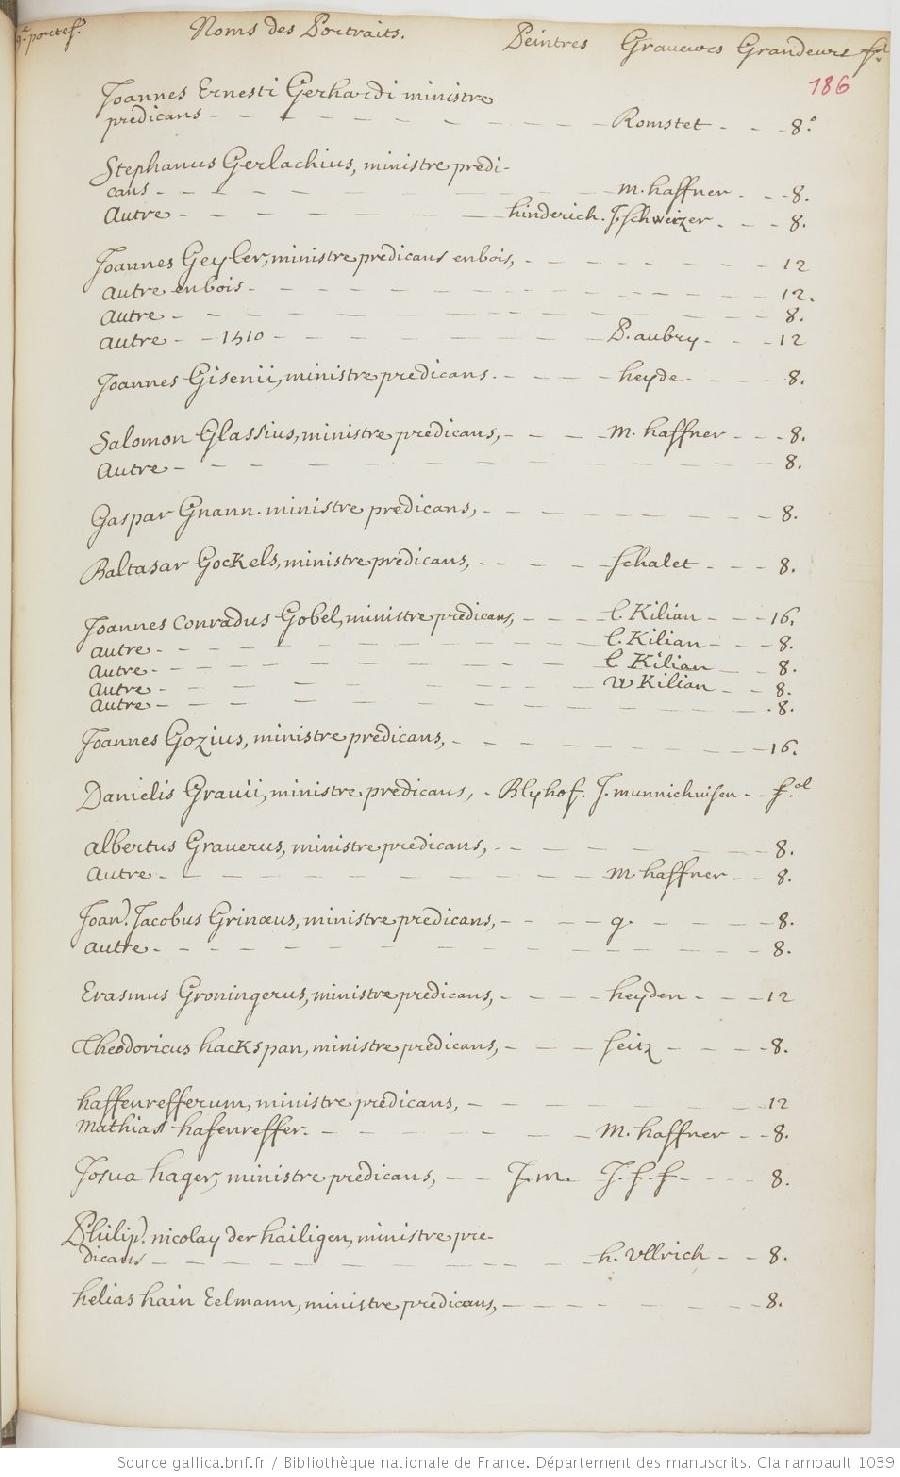 9.e portef. Noms des Portraits. Peintres Graveurs Grandeurs
186
Joannes Ernesti Gerhardi ministre
predicans - - - - - - - - - Romstet - - - 8.o
Stephanus Gerlachius, ministre predi-
cans - - - - - - - - - m. haffner - - - 8.
Autre - - - - - hinderich. J. schweizer - - - 8.
Joannes Geyler, ministre predicans en bois, - - - - - - 12
autre en bois - - - - - - - - - 12.
autre - - - - - - - - - 8.
autre - - 1510 - - - - - - P. aubry - - - 12
Joannes Gisenii, ministre predicans - - - - heyde - - 8.
Salomon Glassius, ministre predicans, - - - m. haffner - - - 8.
Autre - - - - - - - - - 8.
Gaspar Gnann. ministre predicans, - - - - - - - 8.
Baltasar Gockels, ministre predicans, - - - schalet - - - 8.
Joannes Conradus Gobel, ministre predicans, - - - l Kilian - - - 16.
autre - - - - - - - - - l. Kilian - - - 8.
autre - - - - - - - - - l Kilian - - 8.
autre - - - - - - - - - w Kilian - - 8.
autre - - - - - - - - - 8.
Joannes Gozius, ministre predicans, - - - - - - - 16.
Danielis Gravii, ministre predicans, - Blyhof. J. munnichuisen - f.ol
albertus Graverus, ministre predicans, - - - - - - - 8.
autre - - - - - - - - - m haffner - - 8.
Joan). Jacobus Grinæus, ministre predicans, - - - - g. - - - 8.
autre - - - - - - - - - 8.
Erasmus Groningerus, ministre predicans, - - - heyden - - - 12
Theodoricus hackspan, ministre predicans, - - - seitz - - - 8.
haffenrefferum, ministre predicans, - - - - - - - 12
mathias hafenreffer - - - - - - - m. haffner - - 8.
Josua hager, ministre predicans, - - J. m. J. f. f - - - - 8.
Philip). nicolay der hailigen, ministre pre-
dicans - - - - - - - - - h. Ullrich - - 8.
helias hain Eelmann, ministre predicans, - - - - - - 8.
Source gallica.bnf.fr / Bibliothèque nationale de France. Département des manuscrits. Clairambault 1039